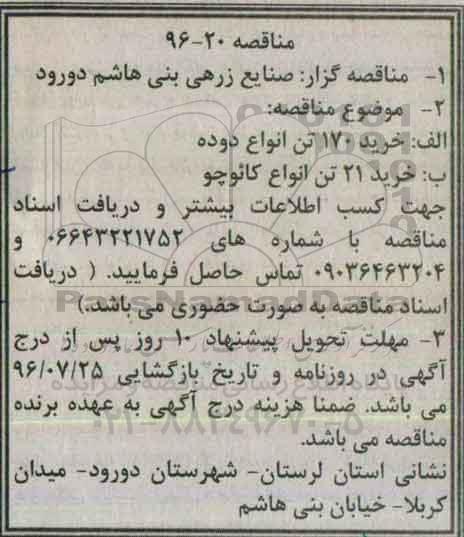 مناقصه ۲۰-۹۶
۱- مناقصه گزار: صنایع زرهی بنی هاشم دورود
۲- موضوع مناقصه:
الف: خرید ۱۷۰ تن انواع دوده
ب: خرید ۲۱ تن انواع کائوچو
جهت کسب اطلاعات بیشتر و دریافت اسناد
مناقصه با شماره های ۰۶۶۴۳۲۲۱۷۵۲ و
۰۹۰۳۶۴۶۳۲۰۴ تماس حاصل فرمایید. ( دریافت
اسناد مناقصه به صورت حضوری می باشد.)
ParsNamadData
۳- مهلت تحویل پیشنهاد ۱۰ روز پس از درج
آگهی در روزنامه و تاریخ بازگشایی ۹۶/۰۷/۲۵
می باشد. ضمنا هزینه درج آگهی به عهده برنده
۰۲۱-۸۸۳۴۹۶۷۰-۵
مناقصه می باشد.
نشانی استان لرستان- شهرستان دورود- میدان
کربلا- خیابان بنی هاشم